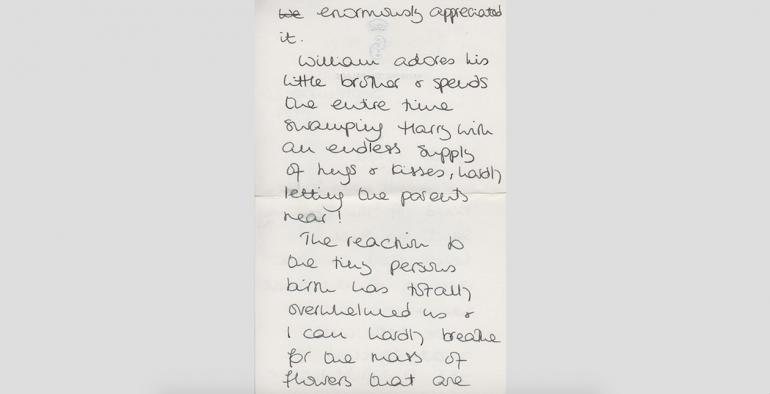 We enormously appreciated
it.
William adores his
little brother & spends
the entire time
swamping Harry with
an endless supply
of hugs & kisses, hardly
letting the parents
near!
The reaction to
the tiny persons
birth has totally
overwhelmed us &
I can hardly breathe
for the mass of
flowers that are